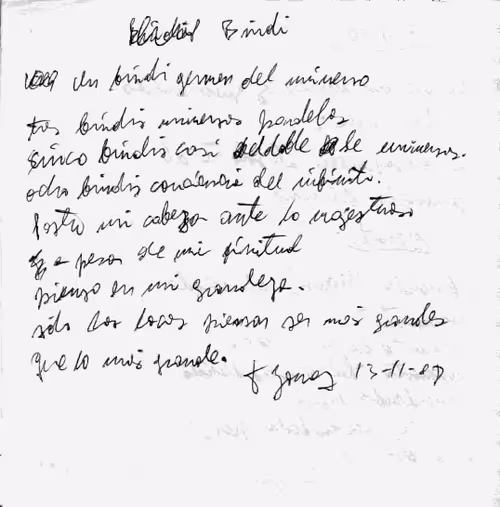 Bindi
un bindi germen del universo
tres bindis universos paralelos
cinco bindis casi doble de universos.
ocho bindis conciencia del infinito.
Postro mi cabeza ante lo majestuoso
a pesar de mi finitud
pienso en mi grandeza.
sólo los locos piensan ser más grandes
que lo más grande.
13-11-07